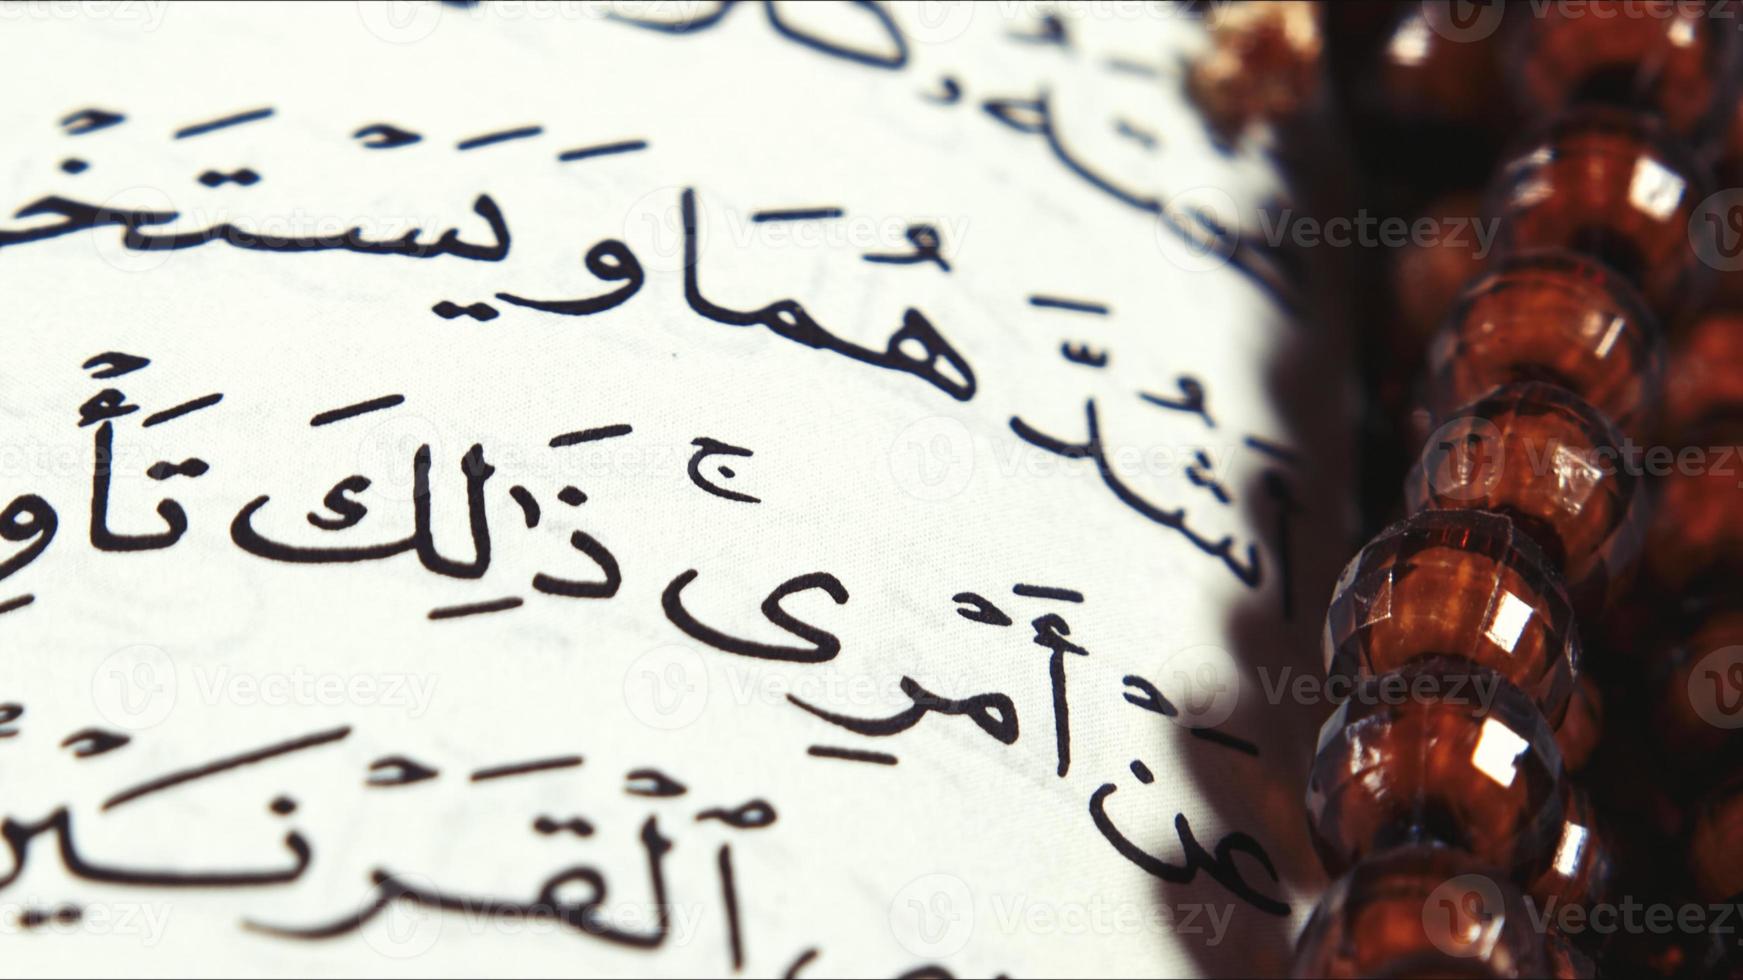 أَشُدَّهُمَا وَيَسْتَخْ
عَنْ أَمْرِى ۚ ذَٰلِكَ تَأْوِ
ٱلْقَرْنَيْن
Vecteezy